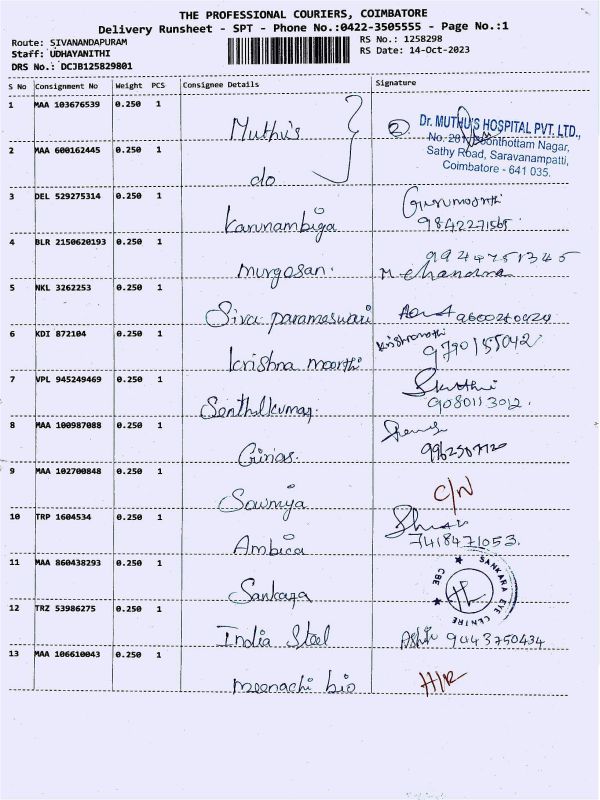 THE PROFESSIONAL COURIERS, COIMBATORE
Delivery Runsheet - SPT - Phone No.:0422-3505555 - Page No.:1
Route: SIVANANDAPURAM
Staff: UDHAYANITHI
DRS No.: DCJB125829801
RS No.: 1258298
RS Date: 14-Oct-2023
S No Consignment No Weight PCS Consignee Details Signature
1 MAA 103676539 0.250 1 Muthu's
Dr. MUTHU'S HOSPITAL PVT. LTD.,
No. 28 Poonthottam Nagar,
Sathy Road, Saravanampatti,
Coimbatore - 641 035.
2 MAA 600162445 0.250 1 do
3 DEL 529275314 0.250 1 Karunambiga Gurumoorthi
9842271565
4 BLR 2150620193 0.250 1 Murgosan. 9944751345
M Chandra
5 NKL 3262253 0.250 1 Siva parameswari
6 KDI 872104 0.250 1 krishna moorthi Krishnamoorthi
9790155042
7 VPL 945249469 0.250 1 Senthilkumar Skuthi
9080113012.
8 MAA 100987088 0.250 1 Girias.
9 MAA 102700848 0.250 1 Sowmiya C/N
10 TRP 1604534 0.250 1 Ambica
7418471053.
11 MAA 860438293 0.250 1 Sankara SANKARA EYE CENTRE CBE
12 TRZ 53986275 0.250 1 India Steel 9043750434
13 MAA 106610043 0.250 1 meenachi bio H/R